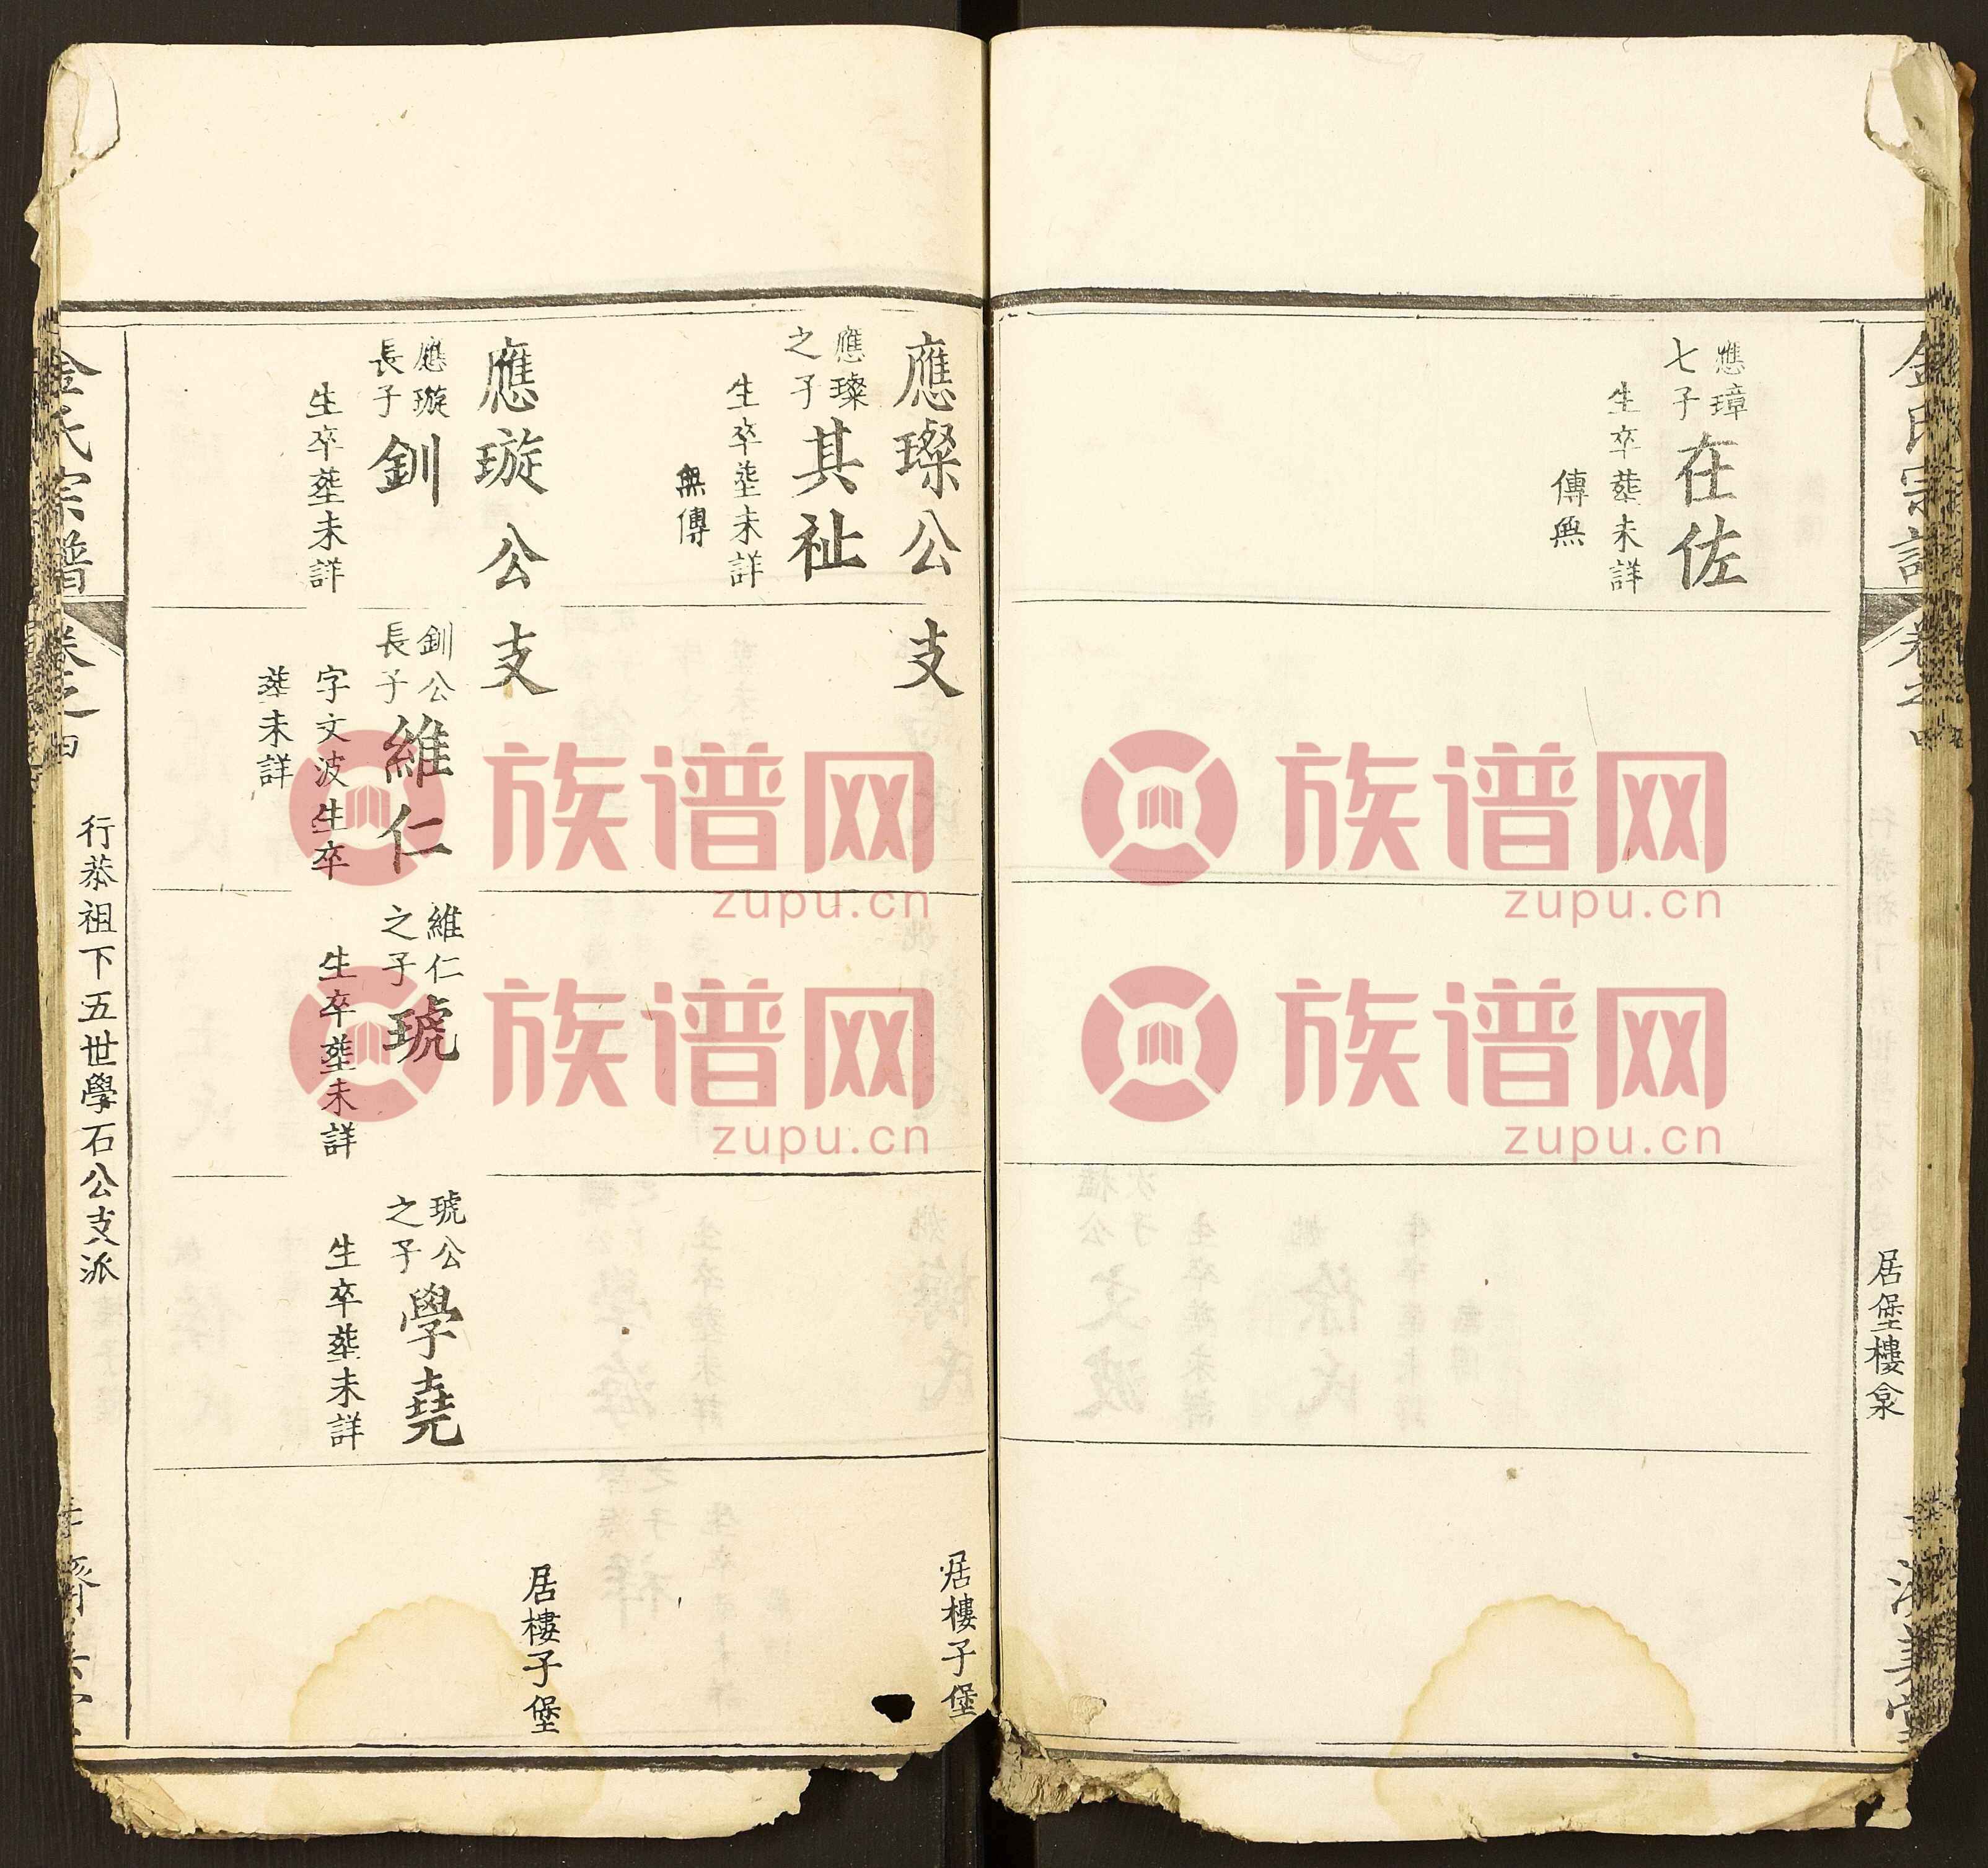 金氏宗譜 卷之四
居堡樓泉
濟美堂
應璋七子
在佐
生卒葬未詳
傳無
應璨公支
居樓子堡
應璨之子
其祉
生卒塟未詳
無傳
應璇公支
居樓子堡
應璇長子
釧
生卒塟未詳
釧公長子
維仁
字文波生卒
塟未詳
維仁之子
琥
生卒塟未詳
琥公之子
學堯
生卒塟未詳
金氏宗譜 卷之四
行恭祖下五世學石公支派
族谱网
zupu.cn
族谱网
zupu.cn
族谱网
zupu.cn
族谱网
zupu.cn